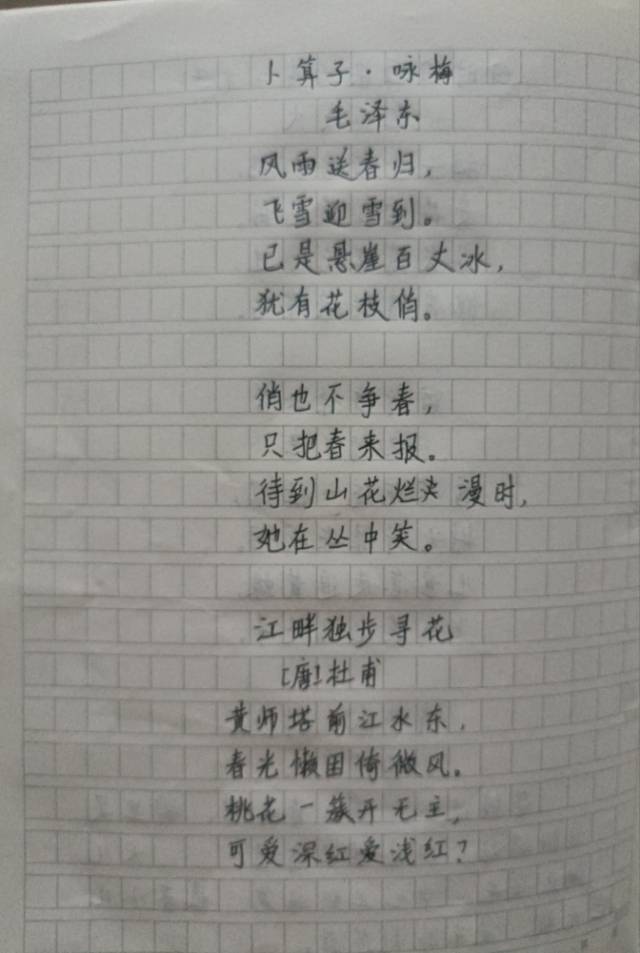 卜算子·咏梅
毛泽东
风雨送春归，
飞雪迎雪到。
已是悬崖百丈冰，
犹有花枝俏。
俏也不争春，
只把春来报。
待到山花烂夹漫时，
她在丛中笑。
江畔独步寻花
[唐]杜甫
黄师塔前江水东，
春光懒困倚微风。
桃花一簇开无主，
可爱深红爱浅红？